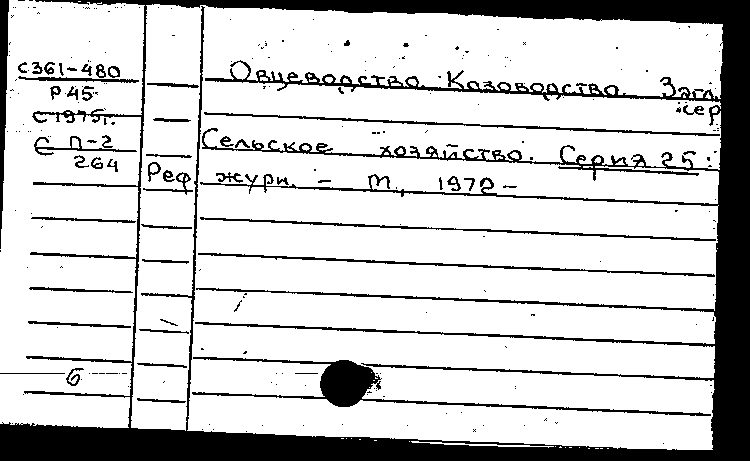 с361-480
Р45
с 1975г.
С П-2
264
Овцеводство. Козоводство. Загл.
сер
Сельское хозяйство. Серия 25:
Реф журн. - М, 1972 -
6